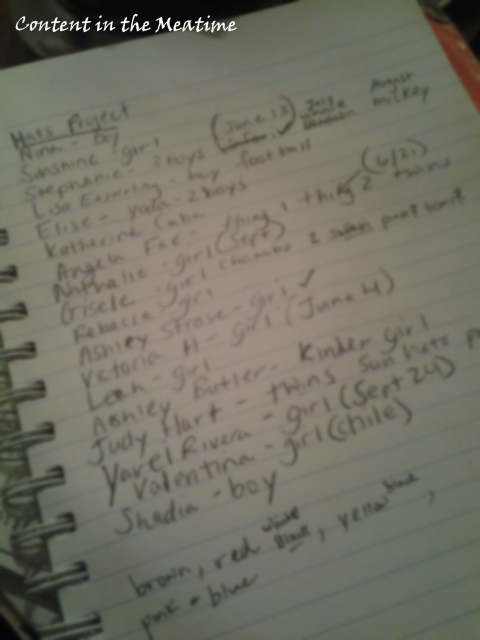 Content in the Meatime
Hats Project
Nina - boy
Sunshine girl (June 13) July August
Stephanie - 2 boys whale mickey
Lisa - boy football
Elise - yoda - 2 boys
Katherine Cuba
Angela Fae - thing 1 thing 2 (6/21) twins
Nathalie - girl (Sept)
Gisele - girl 2
Rebecca girl
Ashley Strose - girl ✓
Victoria H - girl (June 4)
Leah - girl
Ashley Butler - Kinder girl
Judy Hart - twins Sun hats
Yarel Rivera - girl (Sept 24)
Valentina - girl (chile)
Shadia - boy
brown, red white Black, yellow blue,
pink + blue